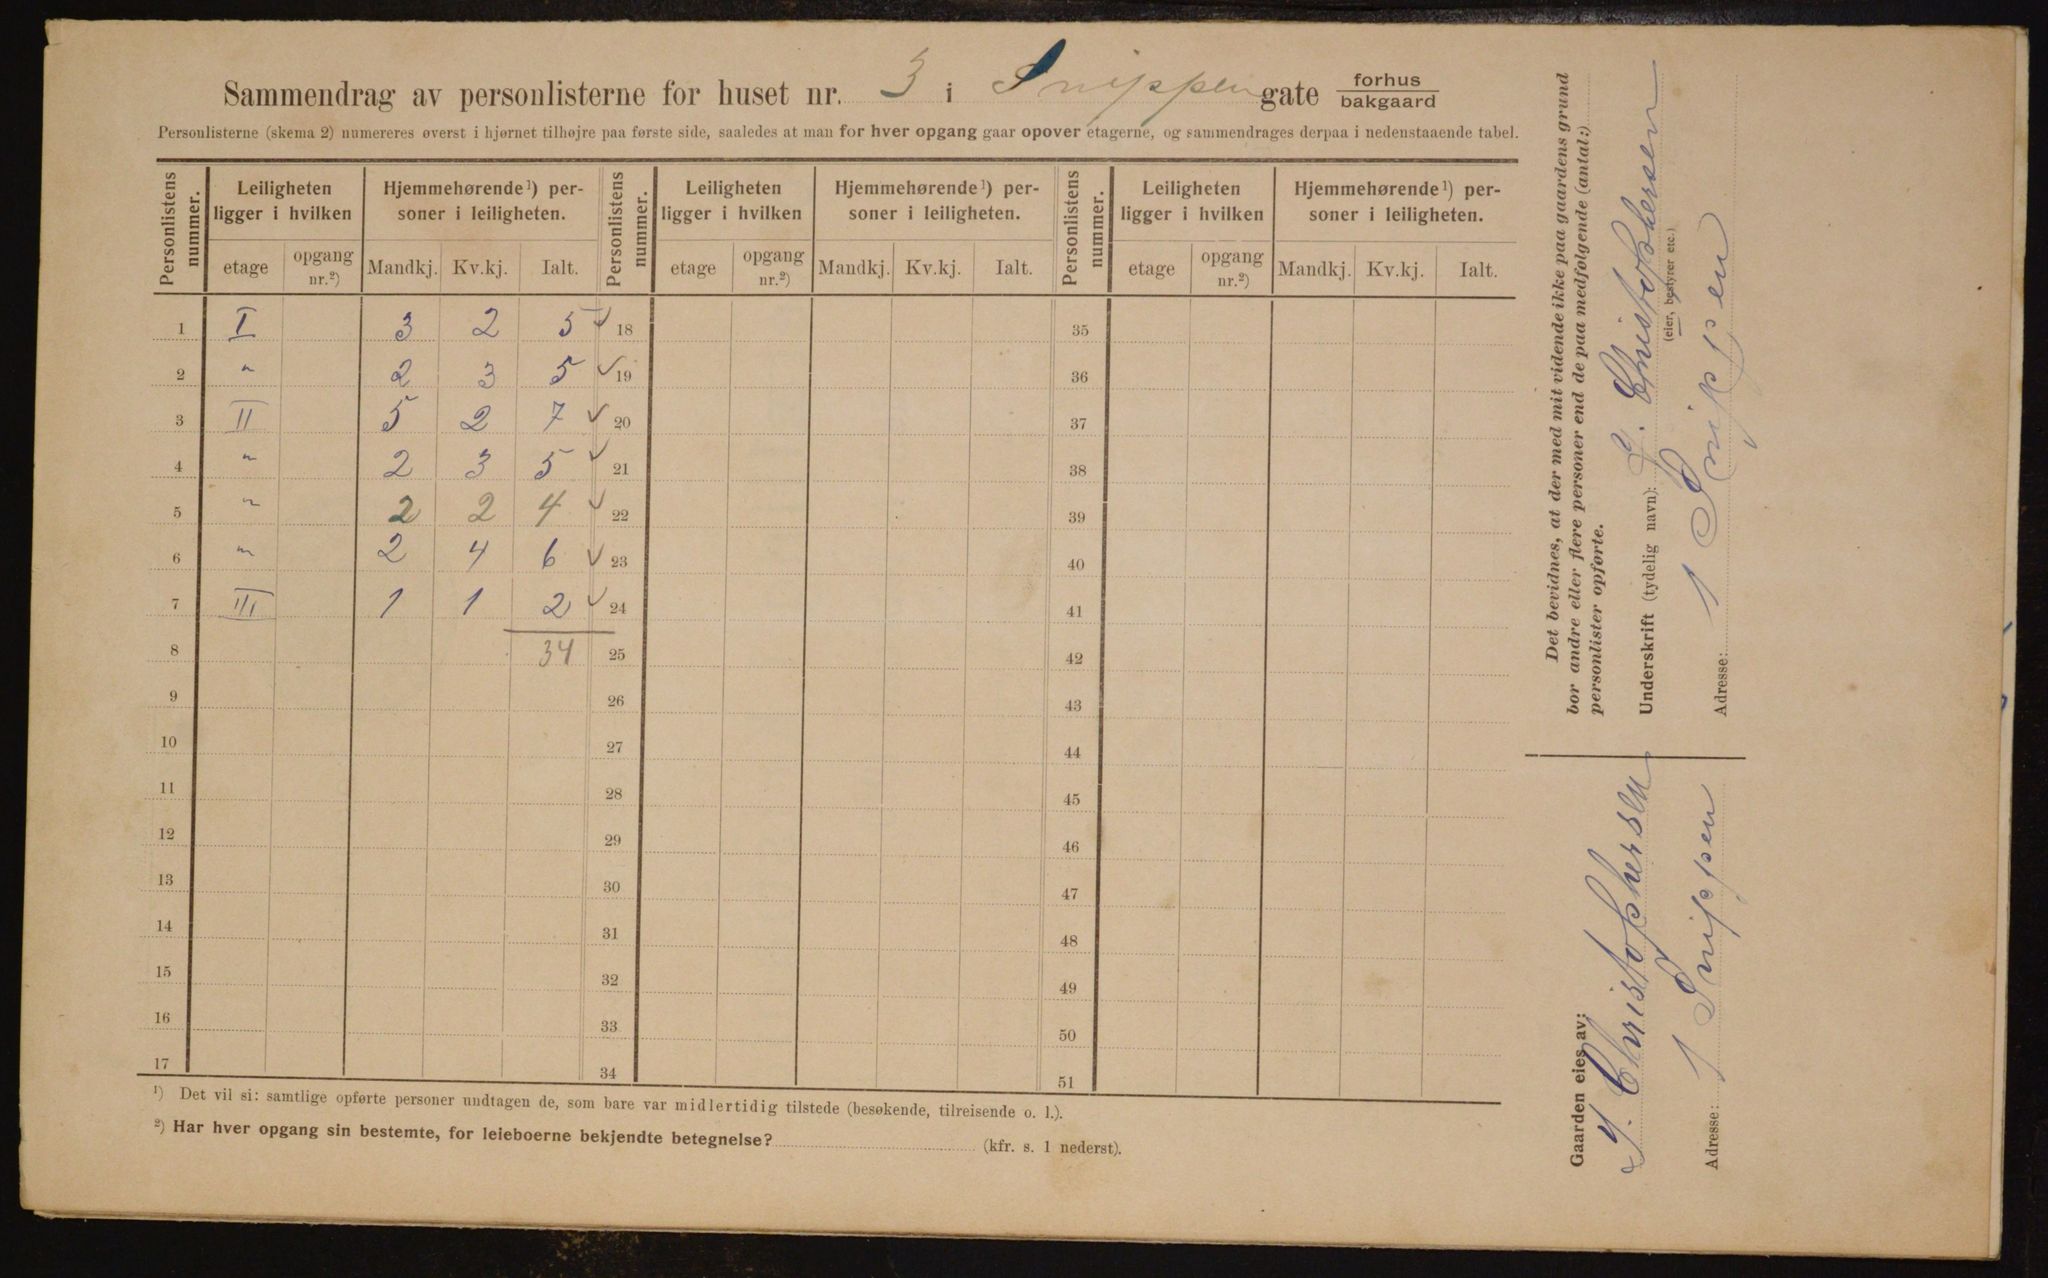 Sammendrag av personlisterne for huset nr. 3 i Snippen gate forhus
bakgaard
Personlisterne (skema 2) numereres øverst i hjørnet tilhøjre paa første side, saaledes at man for hver opgang gaar opover etagerne, og sammendrages derpaa i nedenstaaende tabel.
Personlistens nummer. Leiligheten ligger i hvilken Hjemmehørende¹) personer i leiligheten. Personlistens nummer. Leiligheten ligger i hvilken Hjemmehørende¹) personer i leiligheten. Personlistens nummer. Leiligheten ligger i hvilken Hjemmehørende¹) personer i leiligheten.
etage opgang nr.²) Mandkj. Kv.kj. Ialt. etage opgang nr.²) Mandkj. Kv.kj. Ialt. etage opgang nr.²) Mandkj. Kv.kj. Ialt.
1 I 3 2 5 ✓ 18 35
2 " 2 3 5 ✓ 19 36
3 II 5 2 7 ✓ 20 37
4 " 2 3 5 ✓ 21 38
5 " 2 2 4 ✓ 22 39
6 " 2 4 6 ✓ 23 40
7 III 1 1 2 ✓ 24 41
8 34 25 42
9 26 43
10 27 44
11 28 45
12 29 46
13 30 47
14 31 48
15 32 49
16 33 50
17 34 51
¹) Det vil si: samtlige opførte personer undtagen de, som bare var midlertidig tilstede (besøkende, tilreisende o. l.).
²) Har hver opgang sin bestemte, for leieboerne bekjendte betegnelse? (kfr. s. 1 nederst).
Det bevidnes, at der med mit vidende ikke paa gaardens grund
bor andre eller flere personer end de paa medfølgende (antal:)
personlister opførte.
Underskrift (tydelig navn): Christophersen
(eier, bestyrer etc.)
Adresse: 1 Snippen
Gaarden eies av:
Christophersen
Adresse: 1 Snippen